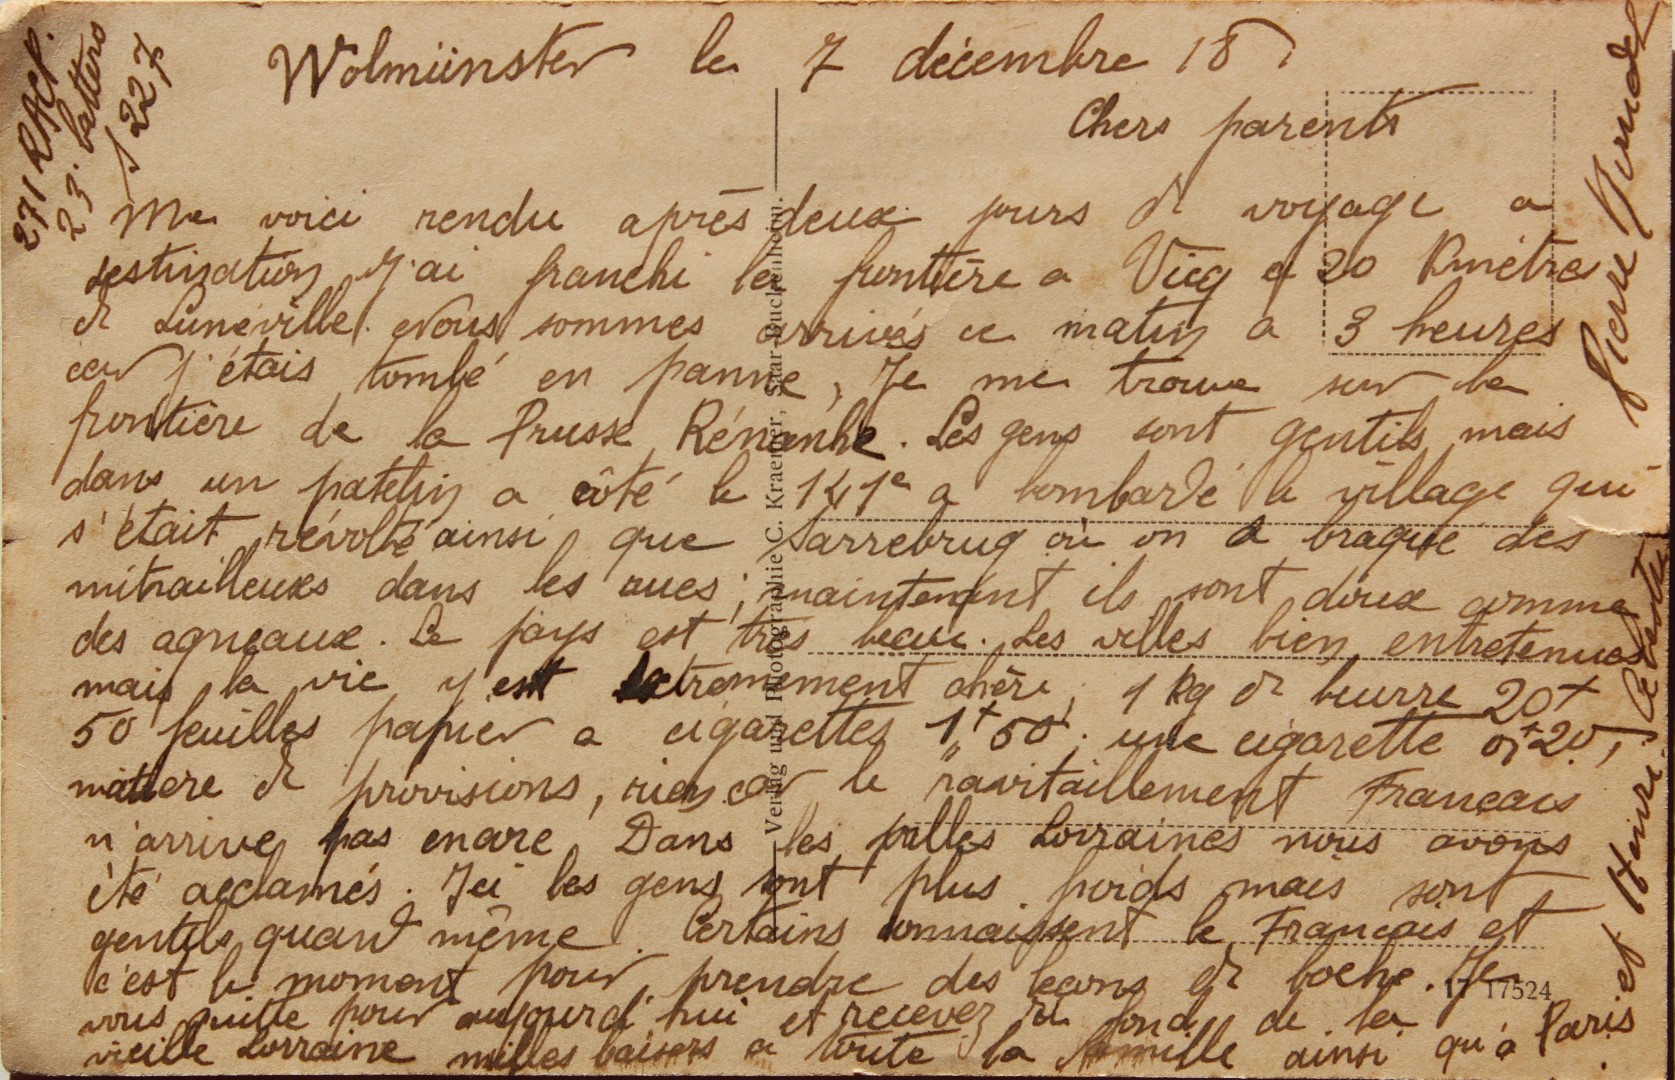 271 RACP.
23. batterie
S 227
Wolmünster le 7 décembre 18
Chers parents
Me voici rendu après deux jours de voyage a
destination j'ai franchi la frontière a Vicq a 20 Kmètres
de Lunéville. Nous sommes arrivés ce matin a 3 heures
car j'étais tombé en panne, Je me trouve sur la
frontière de la Prusse Rénanhe. Les gens sont gentils mais
dans un patelin a côté le 141e a bombardé le village qui
s'était révolté ainsi que Sarrebrug où on a braqué des
mitrailleuses dans les rues; maintenant ils sont doux comme
des agneaux. Le pays est très beau. Les villes bien entretenues
mais la vie y est extremement chère, 1 Kg de beurre 20f
50 feuilles papier a cigarettes 1f50; une cigarette 0f20,
matiere de provisions, rien car le ravitaillement Francais
n'arrive pas encore. Dans les villes Lorraines nous avons
été acclamés. Ici les gens sont plus froids mais sont
gentils quand même. Certains connaissent le Francais et
c'est le moment pour prendre des lecons de boche. Je
vous quitte pour aujourd'hui et recevez du fond de la
vieille Lorraine milles baisers a toute la famille ainsi qu'à Paris
et Henri.
Pierre
Verlag und Photographie C. Kraemer, Saar-Buckenheim.
17 17524